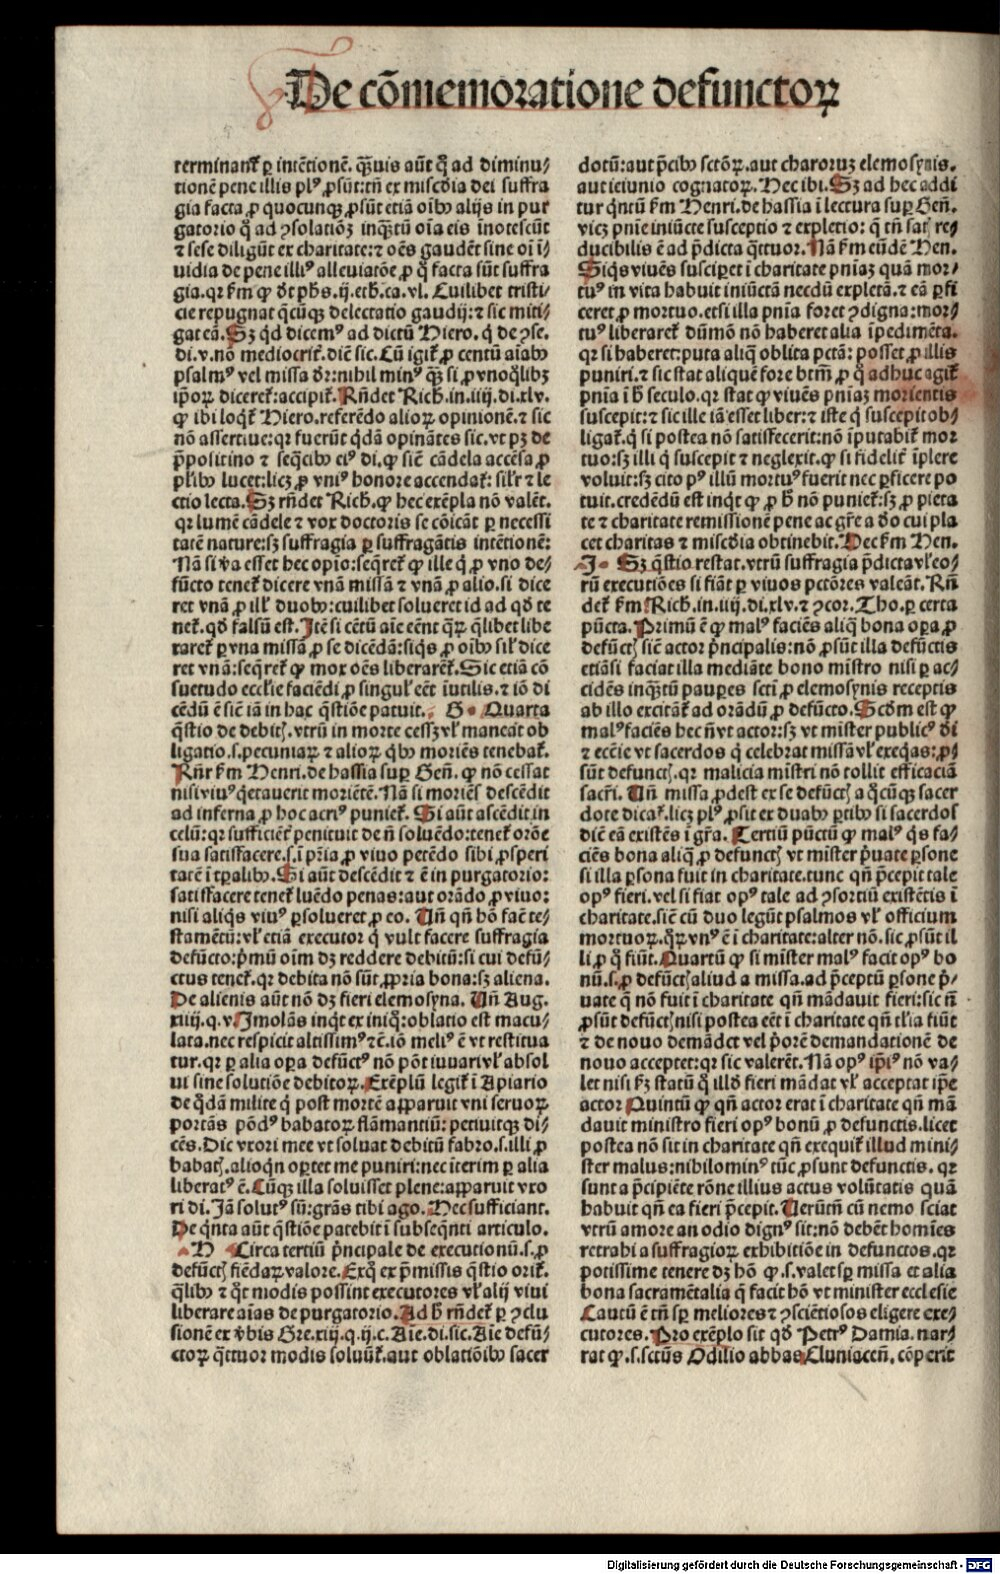 De cōmemoratione defunctoꝝ
terminant᷑ ꝑ intētionē. qᷓꝫuis aūt qͣ ad diminu⸗
tionē pene illis plꝰ ꝓsūt: tn̄ ex misc̄dia dei suffra
gia facta ꝓ quocunqꝫ ꝓsūt etiā oībꝰ alijs in pur
gatorio qͣ ad ꝯsolatiōꝫ inqᷓꝫtū oīa eis īnotescūt
⁊ sese diligūt ex charitate: ⁊ oēs gaudēt sine oī ī⸗
uidia de pene illiꝰ alleuiatōe ꝓ qͦ facta sūt suffra
gia. qꝛ ẜm ꝙ dt phs. ij. eth. ca. vl. Cuilibet tristi⸗
cie repugnat qͨūqꝫ delectatio gaudij: ⁊ sic miti⸗
gat eā. Sꝫ qͥd dicemꝰ ad dictū Hiero. qͥ de ꝯse.
di. v. nō mediocrit᷑. dīē sic. Cū igit᷑ ꝓ centū aīabꝰ
psalmꝰ vel missa dr: nihil minꝰ qᷓꝫ si ꝓ vnoqͦlibꝫ
ipōꝝ diceret᷑: accipit᷑. Rn̄det Rich. in. iiij. di. xlv.
ꝙ ibi loqͥt᷑ Hiero. referēdo alioꝝ opinionē. ⁊ sic
nō assertiue: qꝛ fuerūt qͥdā opinātes sic. vt pꝫ de
p̄positino ⁊ seqͨibꝰ eiꝰ di. ꝙ sicͥ cādela accēsa ꝓ
plibꝰ lucet: licꝫ ꝓ vniꝰ honore accendat᷑: silr ⁊ le
ctio lecta. Sꝫ rn̄det Rich. ꝙ hec exēpla nō valēt.
qꝛ lumē cādele ⁊ vox doctoris se cōicāt ꝑ necessi
tatē nature: sꝫ suffragia ꝑ suffragātis intētionē:
Nā si va esset hec opio: seqret᷑ ꝙ ille qͥ ꝓ vno de⸗
fūcto tenet᷑ dicere vnā missā ⁊ vnā ꝓ alio. si dice
ret vnā ꝓ ill᷑ duobꝰ: cuilibet solueret id ad qd te
net᷑. qd falsū est. Itē si cētū aīe eēnt qͣꝝ qͣlibet libe
raret᷑ ꝑ vna missā ꝓ se dicēdā: siqͥs ꝓ oībꝰ sil᷑ dice
ret vnā: seqret᷑ ꝙ mox oēs liberarēt᷑. Sic etiā cō
suetudo eccl᷑ie faciēdi ꝓ singul᷑ eēt īutilis. ⁊ iō di
cēdū ē sicͥ iā in hac qōstiōe patuit. G Quarta
qōstio de debitꝭ. vtrū in morte cessꝫ vl᷑ maneāt ob
ligatio. s. pecuniaꝝ ⁊ alioꝝ qͥbꝰ moriēs tenebat᷑.
Rn̄r ẜm Henri. de hassia suꝑ Gen̄. ꝙ nō cessat
nisi viuꝰ qͥetauerit moriētē. Nā si moriēs descēdit
ad inferna ꝓ hoc acriꝰ puniet᷑. Si aūt ascēdit in
celū: qꝛ sufficiēt᷑ penituit de n̄ soluēdo: tenet᷑ orōe
sua satisfacere. s. ī pr̄ia ꝓ viuo petēdo sibi ꝓsperi
tatē ī tꝑalibꝰ. Si aūt descēdit ⁊ ē in purgatorio:
satisfacere tenet᷑ luēdo penas: aut orādo ꝓ viuo:
nisi aliqͥs viuꝰ ꝑsolueret ꝓ eo. Vn̄ qn̄ hō facͥ te⸗
stamētū: vl᷑ etiā executor qͥ vult facere suffragia
defūcto: pͥmū oīm dꝫ reddere debitū: si cui defū⸗
ctus tenet᷑. qꝛ debita nō sūt ꝓpria bona: sꝫ aliena.
De alienis aūt nō dꝫ fieri elemosyna. Vn̄ Aug.
xiiij. q. v. Imolās inqͥt ex iniqͦ: oblatio est macu⸗
lata. nec respicit altissimꝰ ⁊c̄. iō meliꝰ ē vt restitua
tur. qꝛ ꝑ alia oꝑa defūctꝰ nō pōt iuuari vl᷑ absol
ui sine solutiōe debitoꝝ. Exēplū legit᷑ ī Apiario
de qͥdā milite qͥ post mortē apparuit vni seruoꝝ
portās pōdꝰ babatoꝝ flāmantiū: petiuitqꝫ di⸗
cēs. Dic vxori mee vt soluat debitū fabro. s. illi ꝓ
babatꝭ. alioqͥn oꝑtet me puniri: nec iterim ꝑ alia
liberatꝰ ē. Cūqꝫ illa soluisset plene: apparuit vxo
ri di. Iā solutꝰ sū: grās tibi ago. Hec sufficiant.
De qͥnta aūt qōstiōe patebit ī subseqͨnti articulo.
H Circa tertiū pͥncipale de executionū. s. ꝓ
defūctꝭ fiēdaꝝ valore. Exqͦ ex p̄missis qōstio orit᷑.
qͣlibꝰ ⁊ qͦt modis possint executores vl᷑ alij viui
liberare aīas de purgatorio. Ad h rn̄det᷑ ꝑ ꝯclu
sionē ex v̓bis Gre. xiij. q. ij. c. Aīe. di. sic. Aīe defū⸗
ctoꝝ qͣttuor modis soluūt᷑. aut oblatiōibꝰ sacer
dotū: aut pͨibꝰ sctōꝝ. aut charoruꝫ elemosynis.
aut ieiunio cognatoꝝ. Hec ibi. Sꝫ ad hec addi
tur qͥntū ẜm Henri. de hassia ī lectura suꝑ Gen̄.
vicꝫ pn̄ie iniūcte susceptio ⁊ expletio: q̄ tn̄ satꝭ re⸗
ducibilis ē ad p̄dicta qͣttuor. Nā ẜm eūdē Hen.
Siqͥs viuēs susciꝑet ī charitate pn̄iaꝫ quā mor⸗
tuꝰ in vita habuit iniūctā necdū expletā. ⁊ eā ꝑfi
ceret ꝓ mortuo. etsi illa pn̄ia foret ꝯdigna: mor⸗
tuꝰ liberaret᷑ dūmō nō haberet alia īpedimēta.
qꝛ si haberet: puta aliqͣ oblita pctā: posset ꝓ illis
puniri. ⁊ sic stat aliquē fore btm̄ ꝓ qͦ adhuc agit᷑
pn̄ia ī h seculo. qꝛ stat ꝙ viuēs pn̄iaꝫ morientis
suscepit: ⁊ sic ille iā esset liber: ⁊ iste qͥ suscepit ob⸗
ligat᷑. qͥ si postea nō satisfecerit: nō īputabit᷑ mor
tuo: sꝫ illi qͥ suscepit ⁊ neglexit. ꝙ si fidelit᷑ īplere
voluit: sꝫ cito pꝰ illū mortuꝰ fuerit nec ꝑficere po
tuit. credēdū est inqͥt ꝙ ꝓ h nō puniet᷑: sꝫ ꝓ pieta
te ⁊ charitate remissionē pene ac gr̄e a deo cui pla
cet charitas ⁊ misc̄dia obtinebit. Hec ẜm Hen.
I Sꝫ qōstio restat. vtrū suffragia p̄dicta vl᷑ eo⸗
rū executiōes si fiāt ꝑ viuos pctōres valeāt. Rn̄
det᷑ ẜm Rich. in. iiij. di. xlv. ⁊ ꝯcor. Tho. ꝑ certa
pūcta. Primū ē ꝙ malꝰ faciēs aliqͣ bona oꝑa ꝓ
defūctꝭ sicͥ actor pͥncipalis: nō ꝓsūt illa defūctis
etiāsi faciat illa mediāte bono mīstro nisi ꝑ ac⸗
cidēs inqᷓꝫtū pauꝑes scti ꝓ elemosynis receptis
ab illo excitāt᷑ ad orādū ꝓ defūcto. Scdm est ꝙ
malꝰ faciēs hec n̄ vt actor: sꝫ vt mīster publicꝰ di
⁊ ecc̄ie vt sacerdos qͥ celebrat missā vl᷑ exeqͥas: ꝓ⸗
sūt defunctꝭ. qꝛ malicia mīstri nō tollit efficaciā
sacr̄i. Vn̄ missa ꝓdest ex se defūctꝭ a qͨūqꝫ sacer
dote dicat᷑. licꝫ plꝰ ꝓsit ex duabꝰ ꝑtibꝰ si sacerdos
dicͥ eā existēs ī gr̄a. Tertiū pūctū ꝙ malꝰ qͥs fa⸗
ciēs bona aliqͣ ꝓ defunctꝭ vt mīster pͥuate ꝑsone
si illa ꝑsona fuit in charitate. tunc qn̄ p̄cepit tale
opꝰ fieri. vel si fiat opꝰ tale ad ꝯsortiū existētis ī
charitate. sicͥ cū duo legūt psalmos vl᷑ officium
mortuoꝝ. qͦꝝ vnꝰ ē ī charitate: alter nō. sic ꝓsūt il
li ꝓ qͦ fiūt. Quartū ꝙ si mīster malꝰ facit opꝰ bo
nū. s. ꝓ defūctꝭ aliud a missa. ad p̄ceptū ꝑsone pͥ⸗
uate q̄ nō fuit ī charitate qn̄ mādauit fieri: sic n̄
ꝓsūt defūctꝭ nisi postea eēt ī charitate qn̄ tl᷑ia fiūt
⁊ de nouo demādet vel pͥorē demandationē de
nouo acceptet: qꝛ sic valerēt. Nā opꝰ ip̄iꝰ nō va⸗
let nisi ẜꝫ statū qͦ illd fieri mādat vl᷑ acceptat ip̄e
actor Quintū ꝙ qn̄ actor erat ī charitate qn̄ mā
dauit ministro fieri opꝰ bonū ꝓ defunctis. licet
postea nō sit in charitate qn̄ exequit᷑ illud mini⸗
ster malus: nihilominꝰ tūc ꝓsunt defunctis. qꝛ
sunt a p̄cipiēte rōne illius actus volūtatis quā
habuit qn̄ ea fieri p̄cepit. Verūtn̄ cū nemo sciat
vtrū amore an odio dignꝰ sit: nō debēt homies
retrahi a suffragioꝝ exhibitiōe in defunctos. qꝛ
potissime tenere dꝫ hō ꝙ. s. valet sꝑ missa et alia
bona sacramētalia q̄ facit hō vt minister ecclesie
Cautū ē tn̄ sꝑ meliores ⁊ ꝯsciētiosos eligere exe⸗
cutores. Pro exēplo sit qd Petrꝰ Damia. nar⸗
rat ꝙ. s. sctūs Odilio abbas Cluniacen̄. cōperit
Digitalisierung gefördert durch die Deutsche Forschungsgemeinschaft - DFG